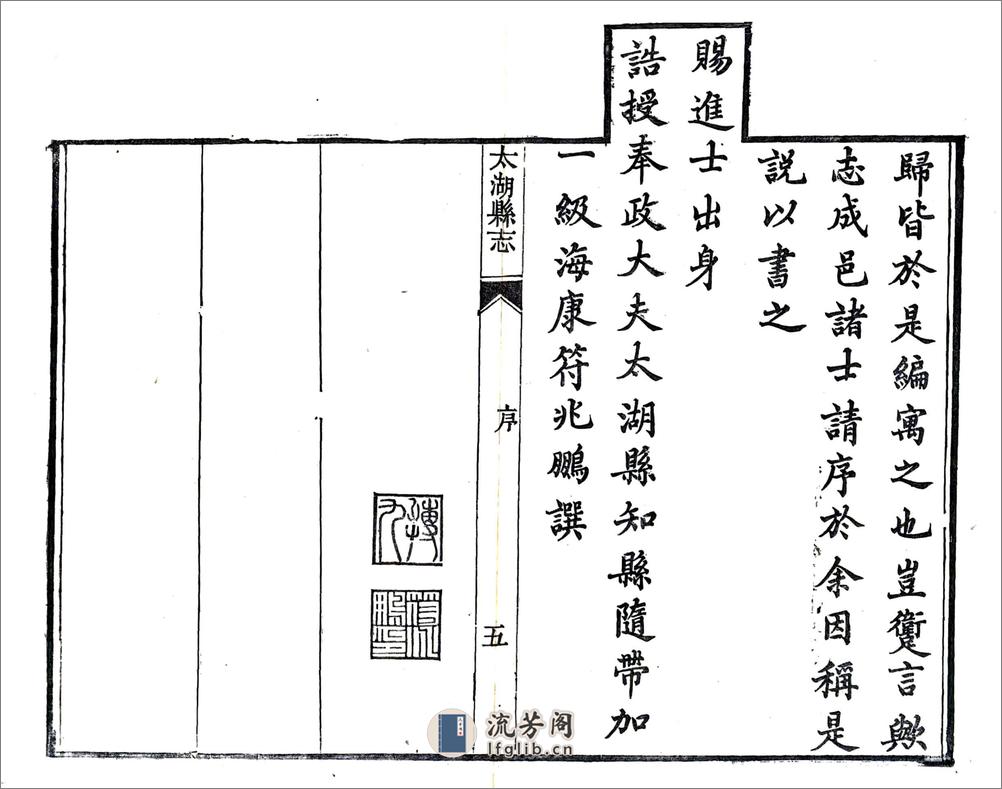 歸皆於是編寓之也豈躗言歟
志成邑諸士請序於余因稱是
說以書之
賜進士出身
誥授奉政大夫太湖縣知縣隨帶加
一級海康符兆鵬撰
太湖縣志
序
五
流芳阁
lfglib.cn